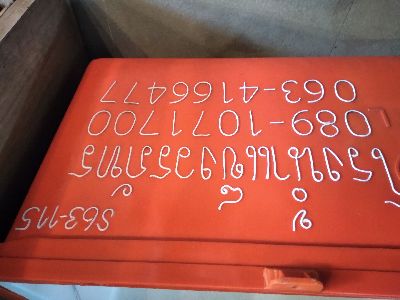 S63-115
โรงน้ำแข็งวรภัทร
089-1071700
063-4166477